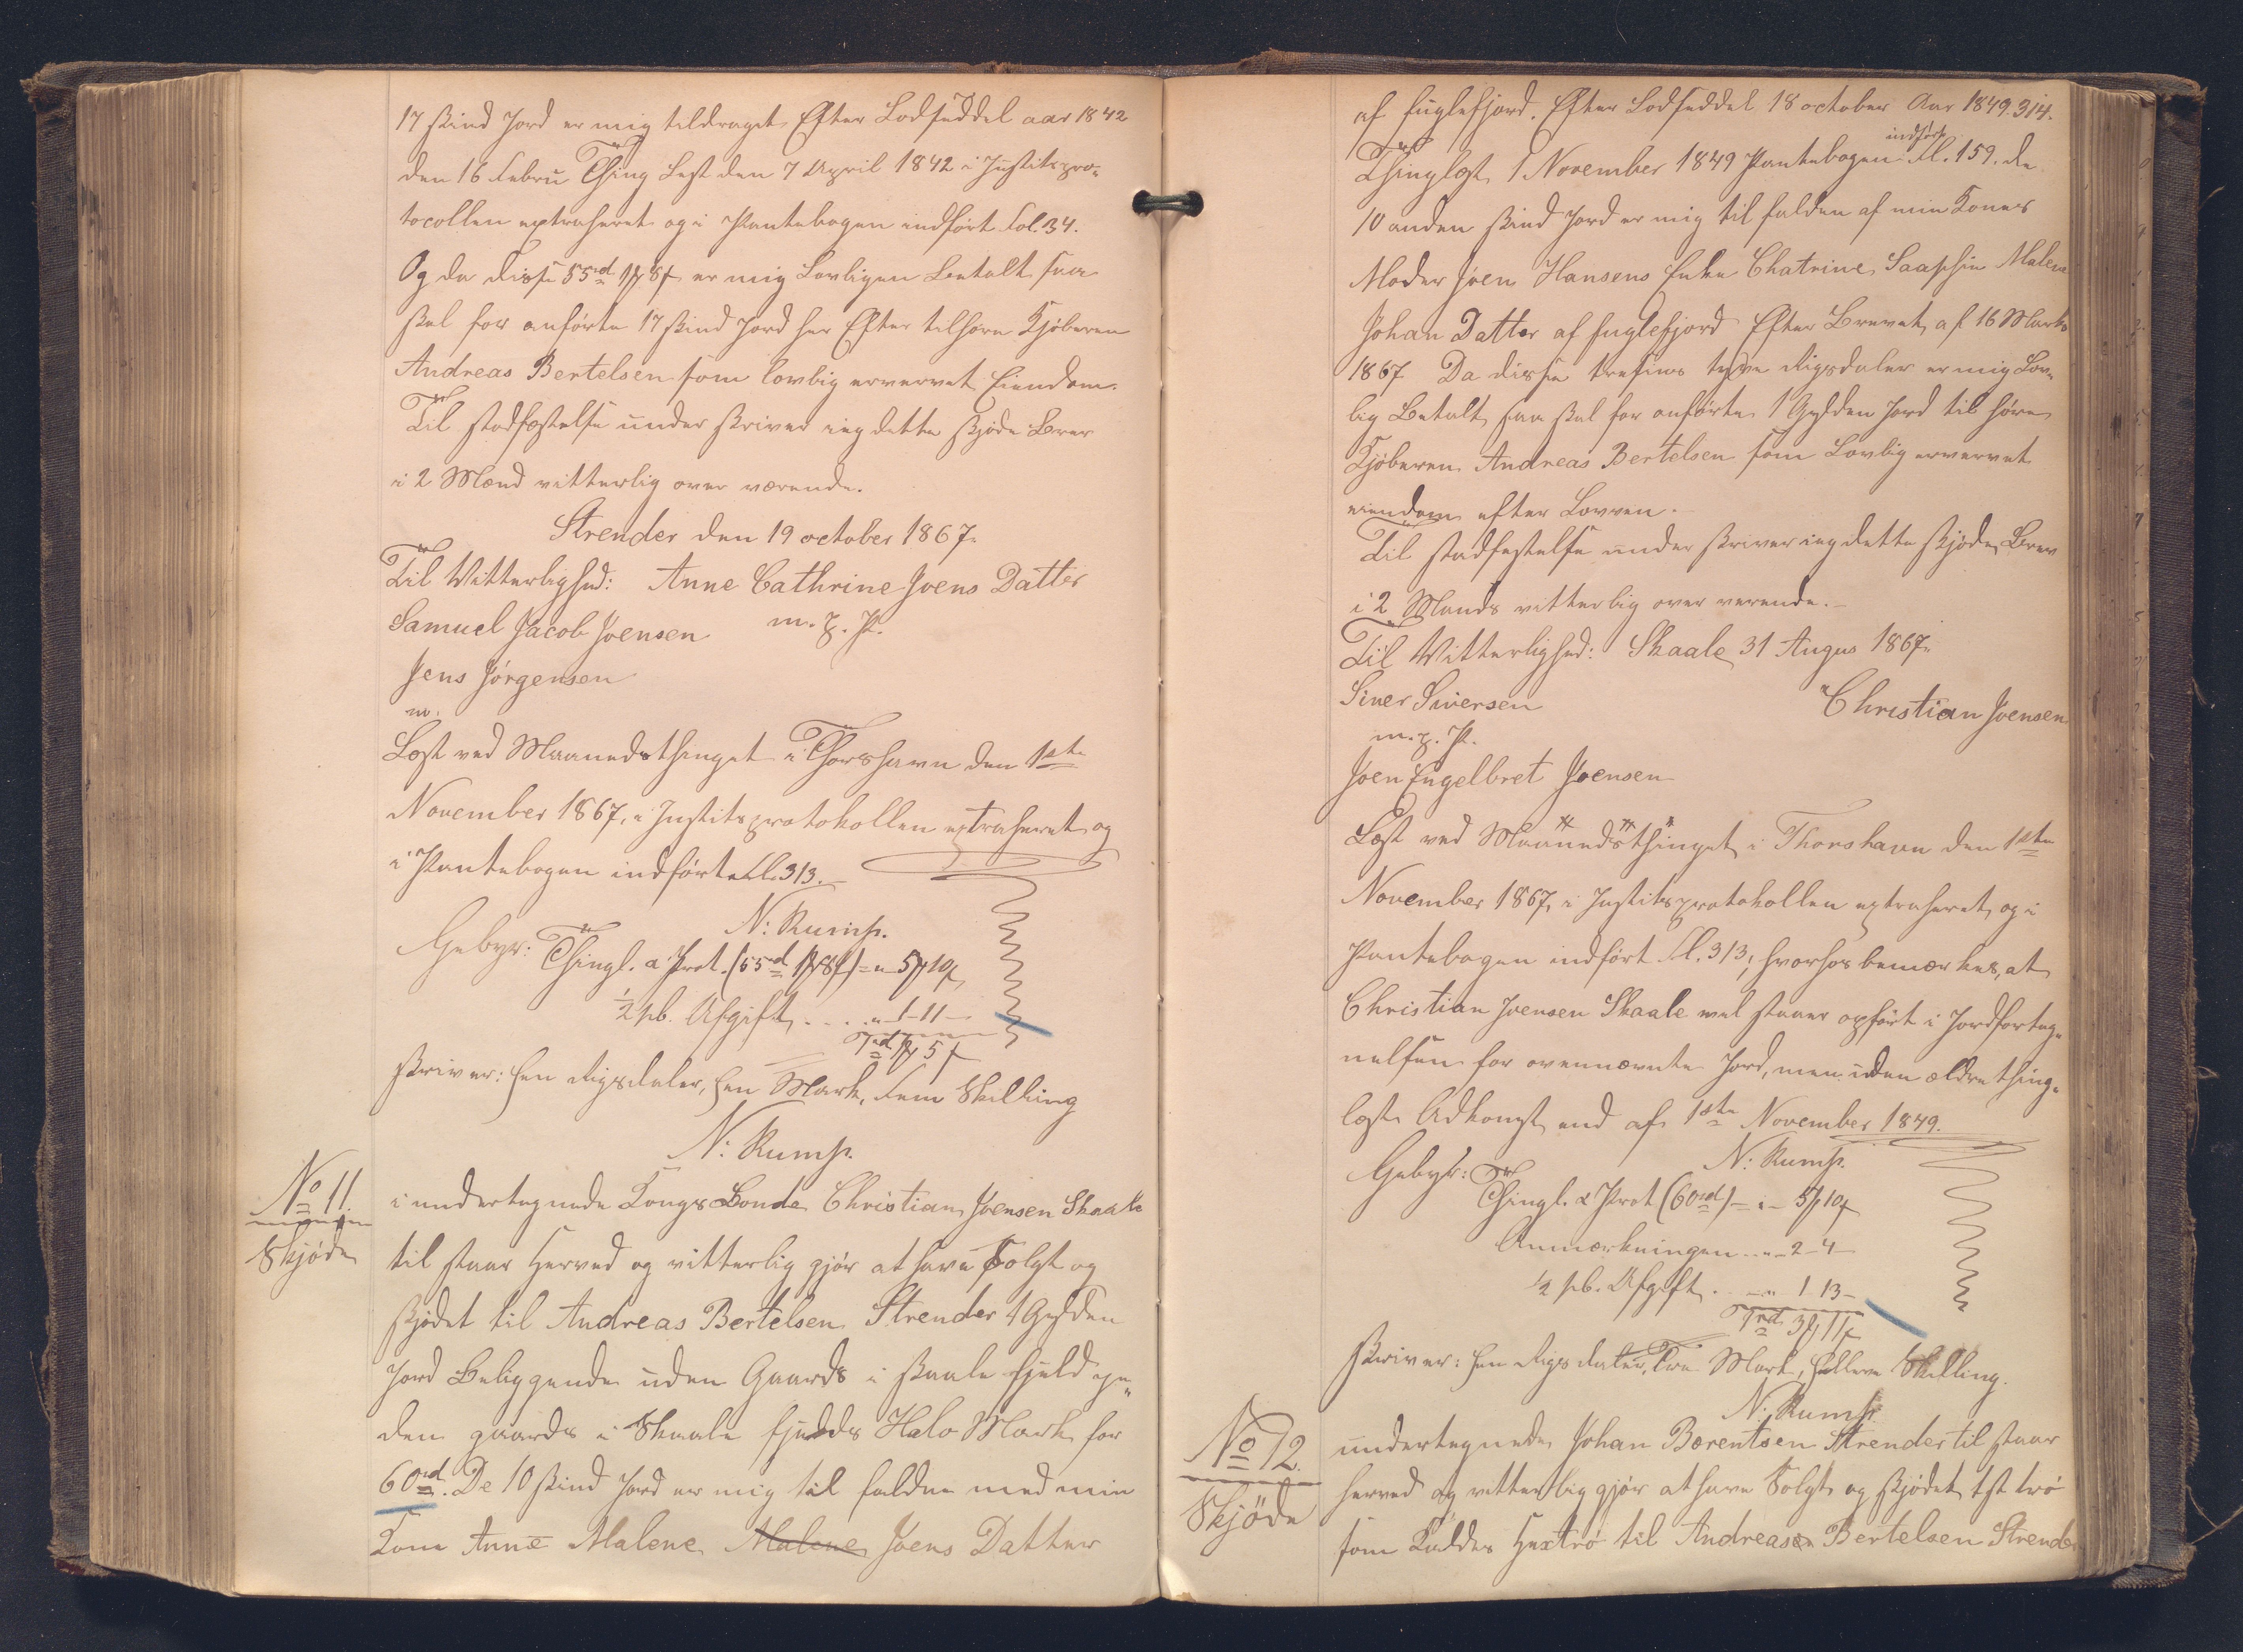 17 skind Jord er mig tildraget Efter Lodseddel aar 1842
den 16 Febru Thing Lest den 7 April 1842 i Justitspro-
tocollen extraheret og i Pantebogen indført Fol. 34.
Og da disse 55rd 1 8 er mig Lovligen Betalt saa
skal for anførte 17 skind Jord her Efter tilhøre Kjøberen
Andreas Bertelsen som lovlig ervervet Eiendom.
Til stadfæstelse under skriver ieg dette skjøde Brev
i 2 Mænd vitterlig over værende.
Strender den 19 october 1867.
Til Vitterlighed: Anne Cathrine Joens Datter
Samuel Jacob Joensen m. p. P.
Jens Jørgensen
m.
Læst ved Maanedsthinget i Thorshavn den 1ste
November 1867, i Justitsprotokollen extraheret og
i Pantebogen indført Fol. 313.
N: Rump.
Gebyr: Thingl. a Prot. (55rd 1 8) = „ 5 10
½ pb. Afgift . . . „ 1-11-
1rd 1 5
skriver: Een Rigsdaler, Een Mark, Fem Skilling
N: Rump.
No 11.
Skjøde
i undertegnede Kongs Bonde Christian Joensen Skaale
til staar Herved og vitterlig gjør at have Solgt og
skjødet til Andreas Bertelsen Strender 1 Gylden
Jord Beliggende uden Gaards i skaale fjeld
den gaards i Skaale fjelds Halv Mark for
60rd. De 10 skind Jord er mig til falden med min
Kone Anne Malene Malene Joens Datter
af fuglefjord. Efter Lodseddel 18 october Aar 1849. 314.
Thinglæst 1 November 1849 Pantebogen indført Fol. 159. de
10 anden skind Jord er mig til falden af min Kones
Moder Joen Hansens Enke Chatrine Malene
Johan Datter af fuglefjord Efter Brevet af 16 Marts
1867 Da disse tresins tyve Rigsdaler er mig Lov-
lig Betalt saa skal for anførte 1 Gylden Jord til høre
Kjøberen Andreas Bertelsen som Lovlig ervervet
eiendom efter Loven.
Til stadfestelse under skriver ieg dette skjøde Brev
i 2 Mands vitterlig over verende.
Til Vitterlighed: Skaale 31 Augus 1867.
Siver Siversen Christian Joensen
m. p. P.
Joen Engelbret Joensen
Læst ved Maanedsthinget i Thorshavn den 1ste
November 1867, i Justitsprotokollen extraheret og i
Pantebogen indført Fol. 313, hvorhos bemærkes, at
Christian Joensen Skaale vel staaer opført i Jordforteg-
nelsen for ovennævnte Jord, men uden ældre thing-
læst Adkomst end af 1ste November 1849.
N: Rump.
Gebyr: Thingl. & Prot (60rd) = „ 5 10
Anmærkningen . . „ 2-4-
½ pb. Afgift . . „ 1 13-
1rd 3 11
skriver: Een Rigsdaler, Tre Mark, Elleve Skilling.
N: Rump
No 12.
Skjöde
undertegnede Johan Bærentsen Strender til staar
herved og vitterlig gjør at have Solgt og skjødet 1st trö
som Kaldes til Andreasen Bertelsen Strender